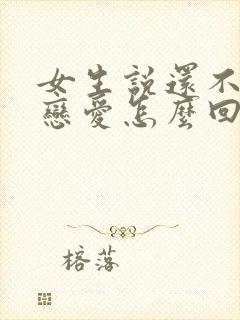 女生説還不
戀愛怎麼回
榕落